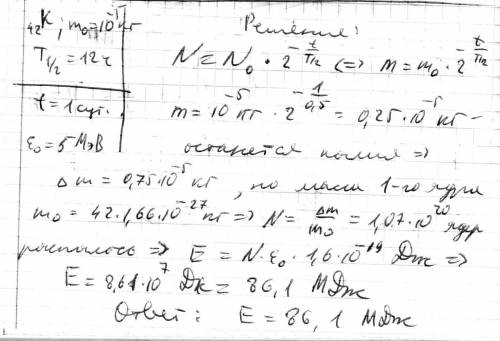 ₄₂K ; m₀ = 10⁻⁵ кг
T₁/₂ = 12 ч
t = 1 сут.
ε₀ = 5 МэВ
Решение:
N = N₀ · 2^(-t/T₁/₂) <=> m = m₀ · 2^(-t/T₁/₂)
m = 10⁻⁵ кг · 2^(-1/0,5) = 0,25 · 10⁻⁵ кг –
останется калия =>
Δm = 0,75 · 10⁻⁵ кг, но масса 1-го ядра
m₀ = 42 · 1,66 · 10⁻²⁷ кг => N = Δm/m₀ = 1,07 · 10²⁰ ядер
распалось => E = N · ε₀ · 1,6 · 10⁻¹⁹ Дж =>
E = 8,61 · 10⁷ Дж = 86,1 МДж
Ответ: E = 86,1 МДж